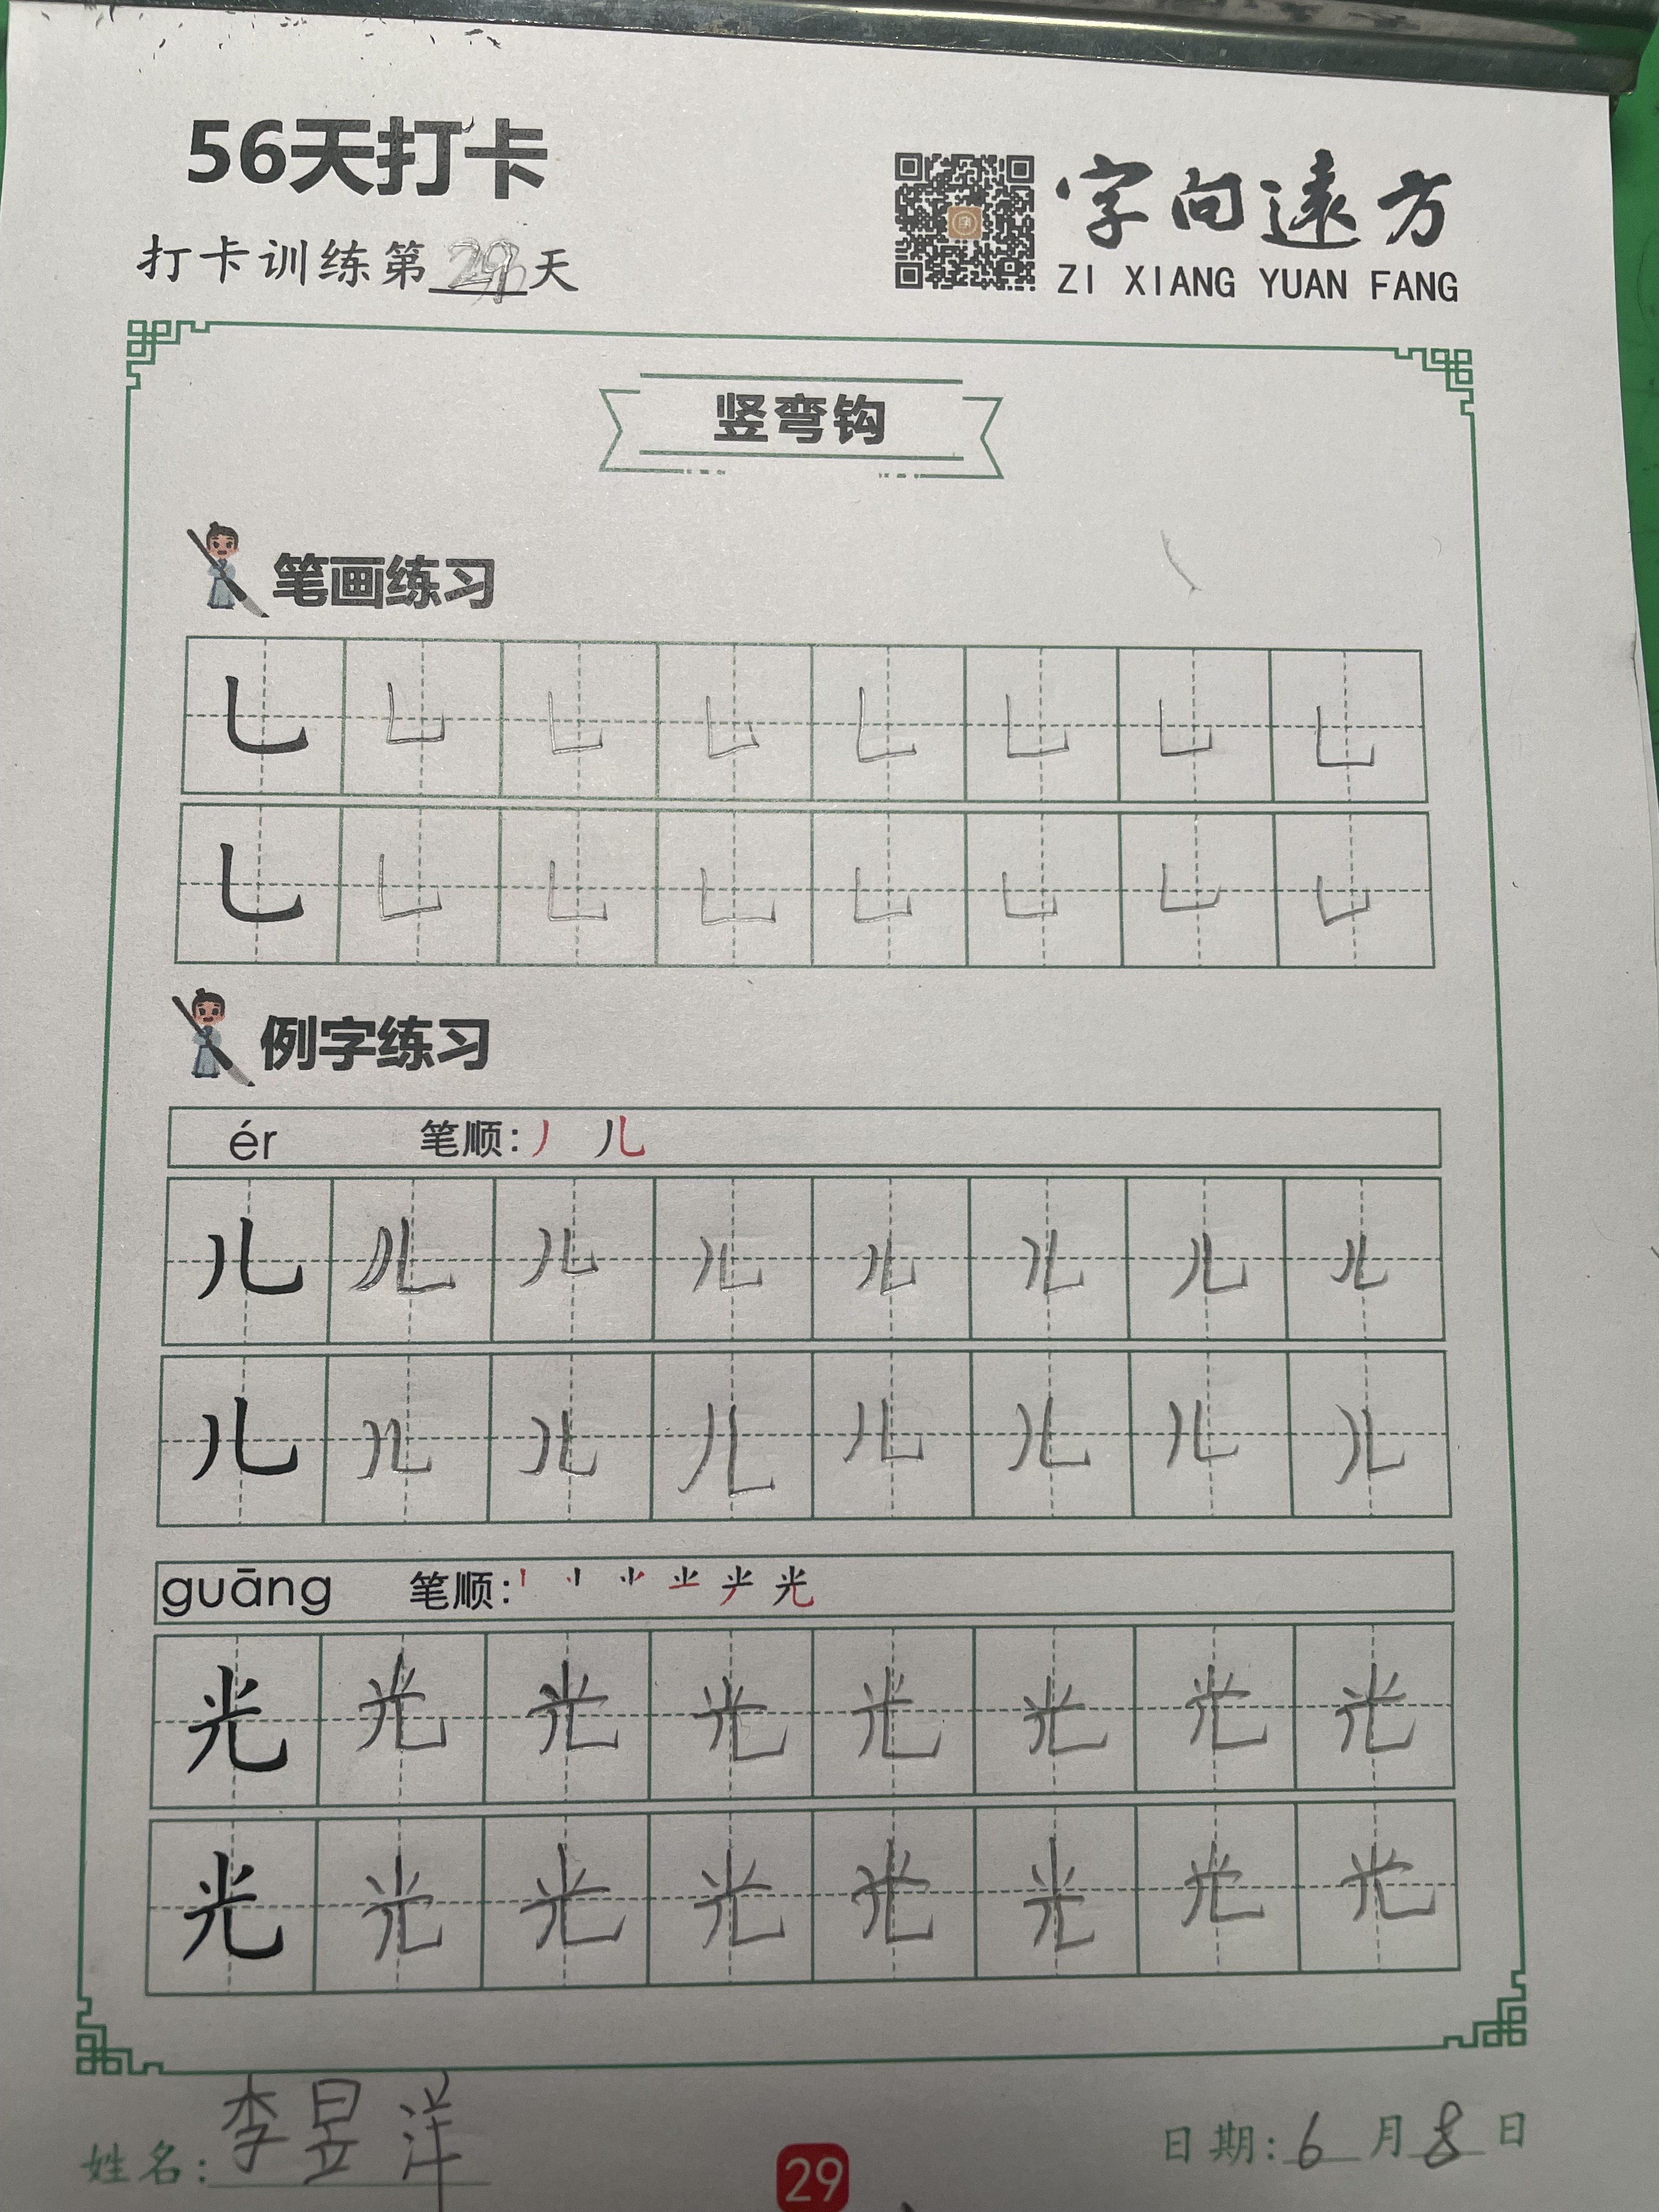 56天打卡
字向遠方
ZI XIANG YUAN FANG
打卡训练第29天
竖弯钩
笔画练习
乚 乚 乚 乚 乚 乚 乚 乚
乚 乚 乚 乚 乚 乚 乚 乚
例字练习
ér 笔顺: 丿 儿
儿 儿 儿 儿 儿 儿 儿 儿
儿 儿 儿 儿 儿 儿 儿 儿
guāng 笔顺: 光
光 光 光 光 光 光 光 光
光 光 光 光 光 光 光 光
姓名: 李昱洋
日期: 6月8日
29